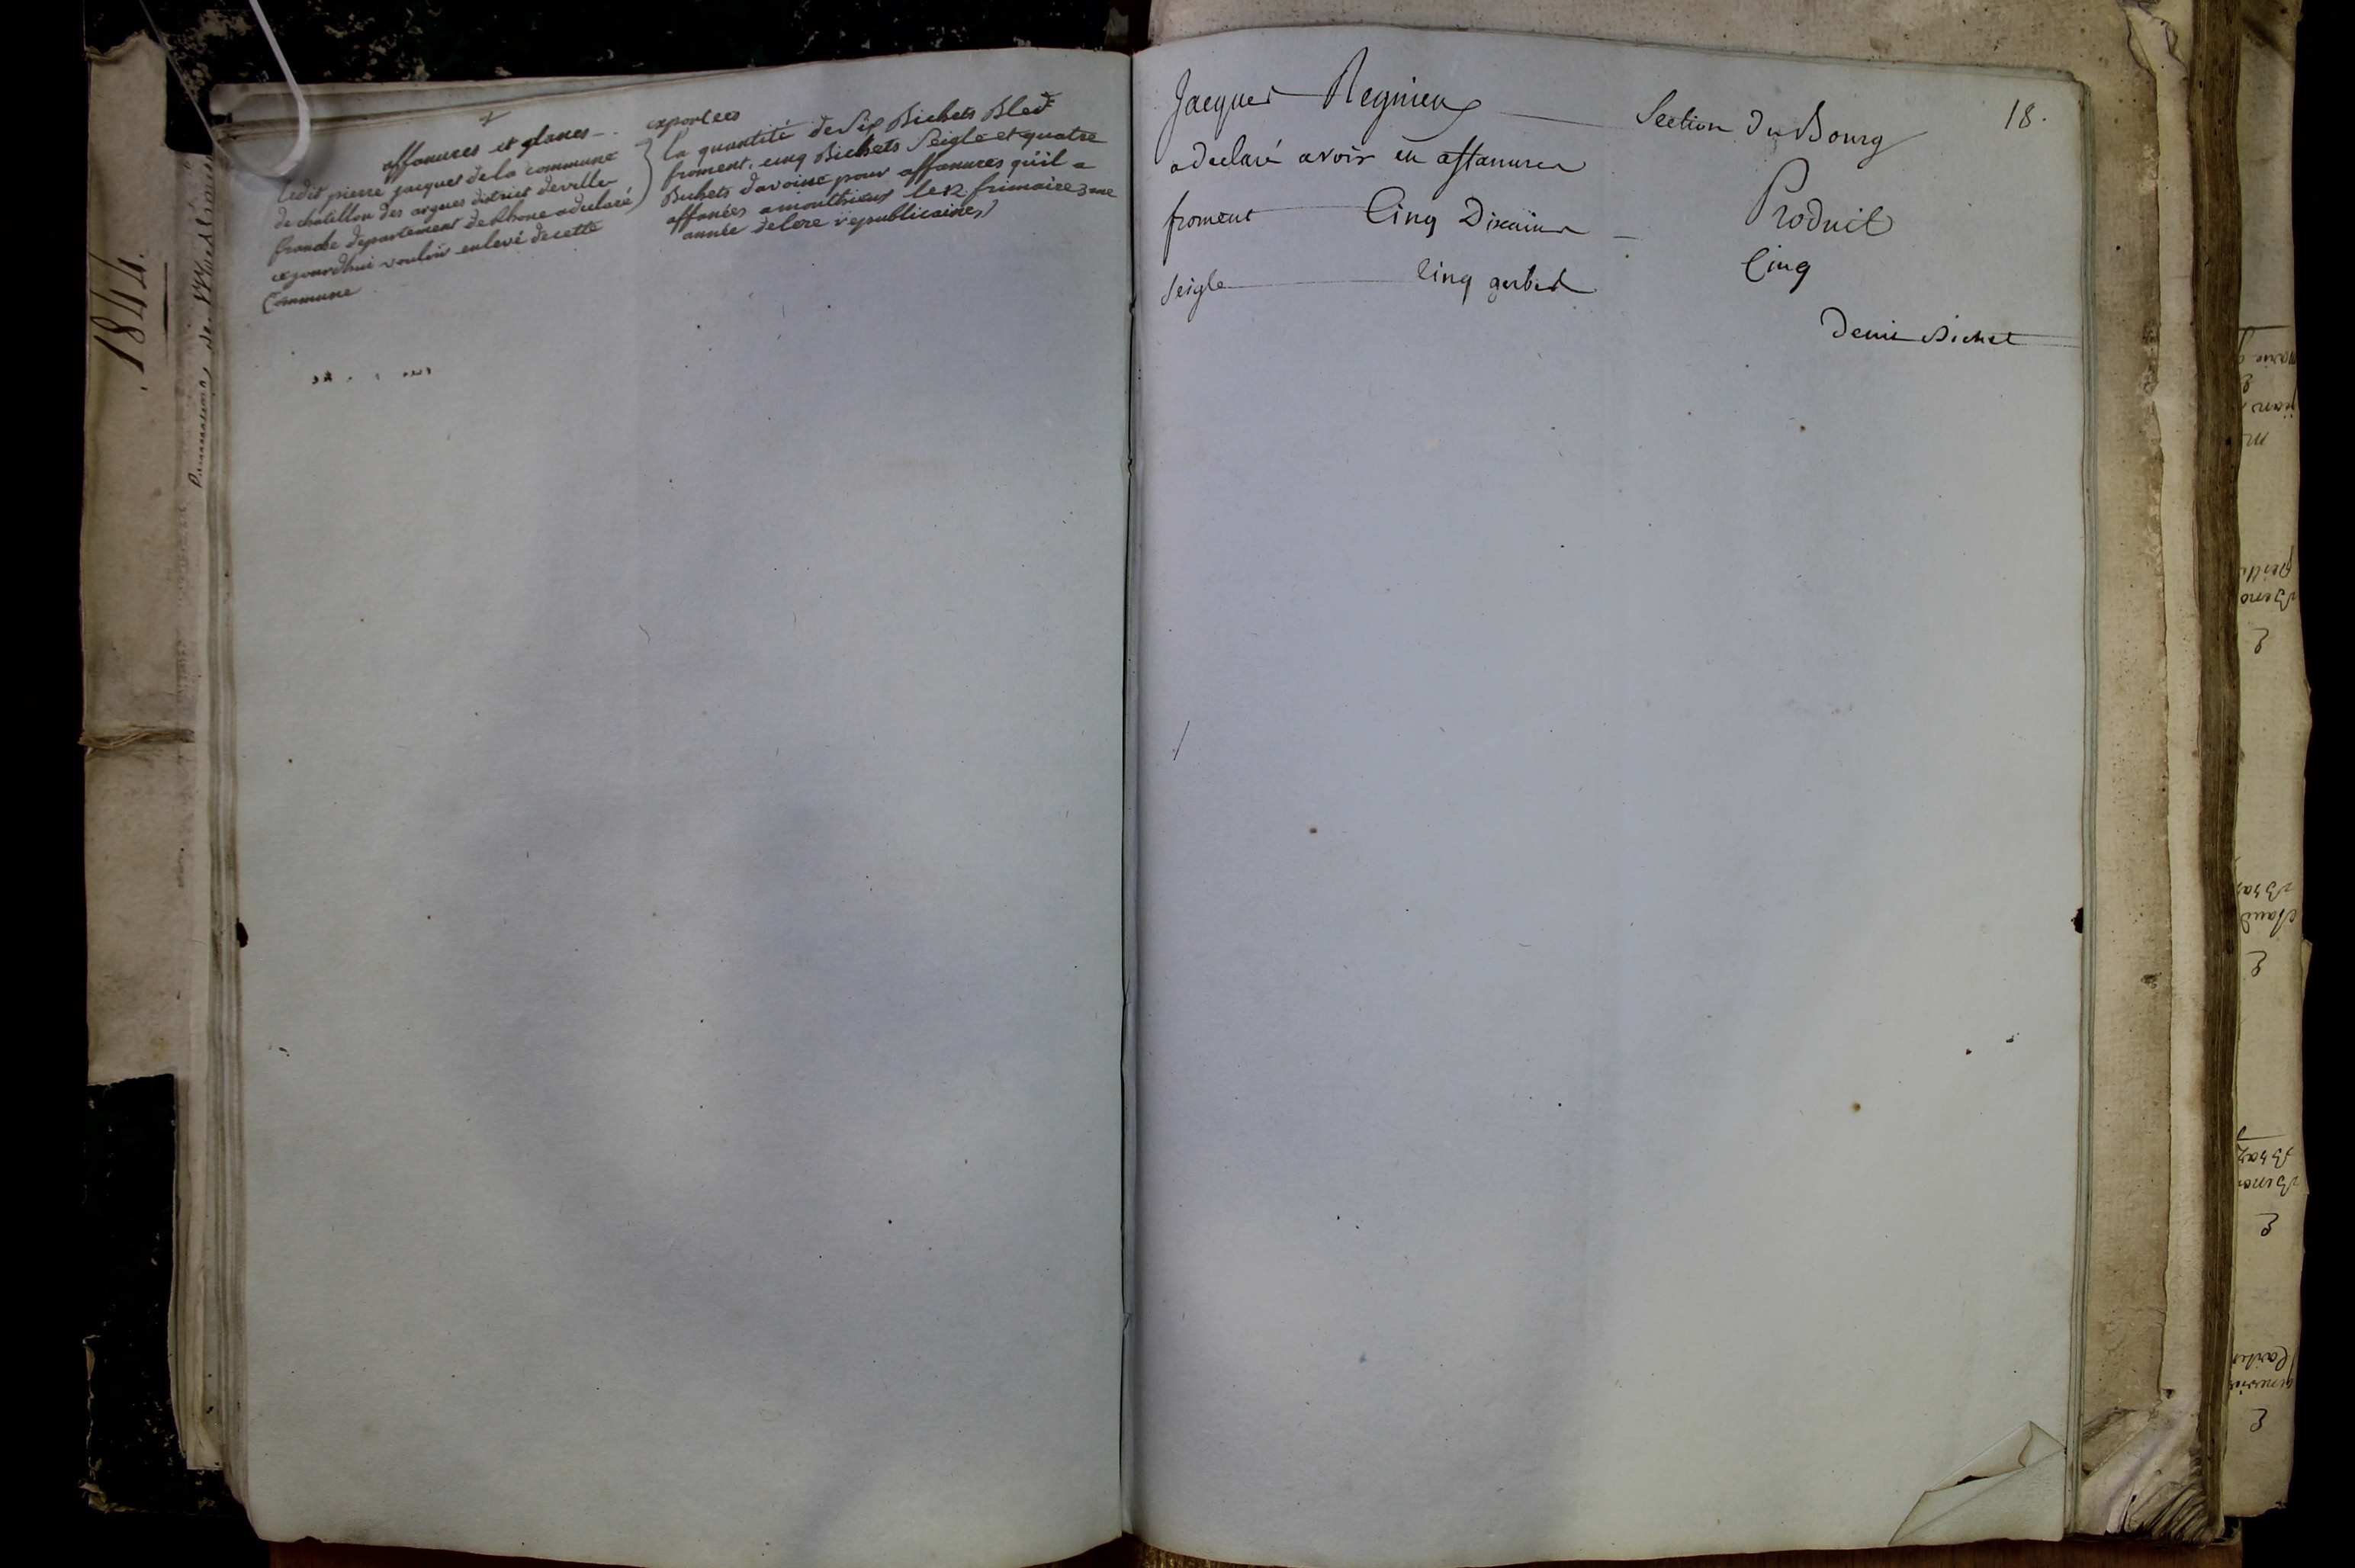 affanures et glanes -
Ledit pierre jacques de la commune
de chatillon des argues district de ville
franche departement de Rhone a declaré
ajourdhui vouloir enlevé de cette
Commune
exportees
la quantité de Six Bichets Bled
froment, cinq Bichets Seigle et quatre
Bichets d'avoine pour affanures qu'il a
affanées a monthieux le 12 frimaire 3me
année de l'ere republicaine
Jacques Regnieux Section Du Bourg 18.
a declaré avoir eu affanures
froment Cinq Dixaines - Produit
Cinq
Seigle Cinq gerbes
Demi Bichet
1844.